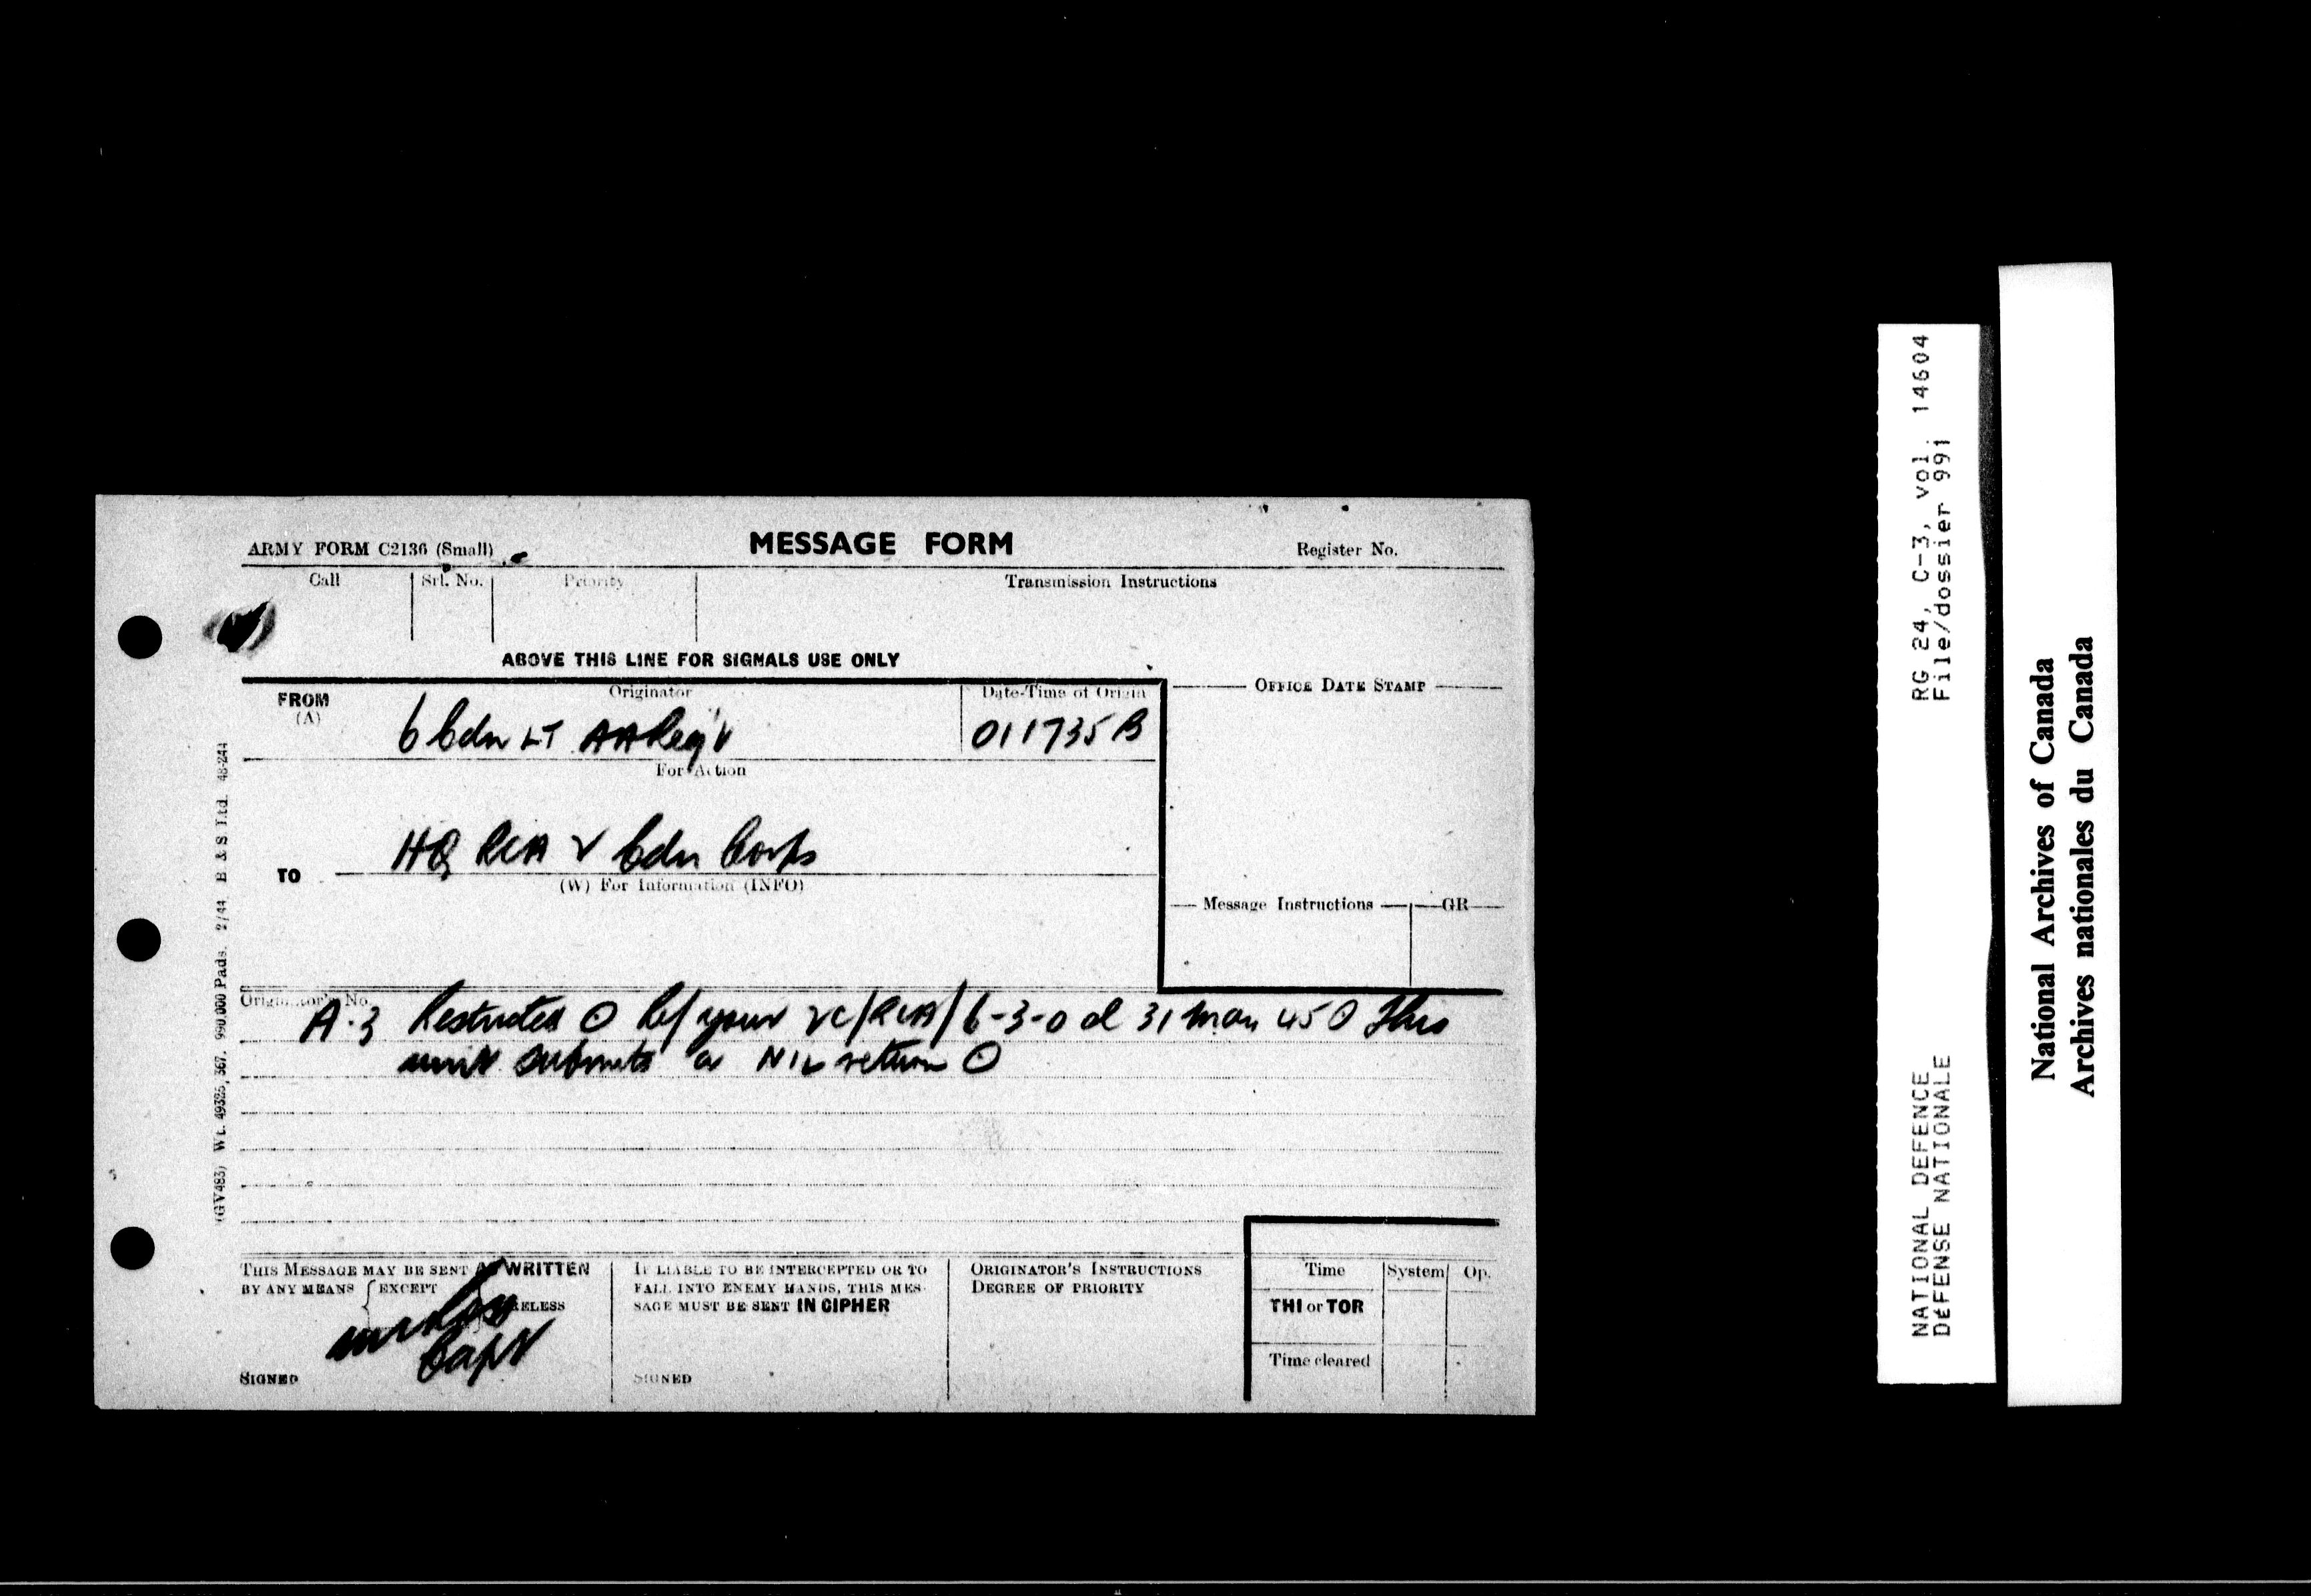 ARMY FORM C2136 (Small)
MESSAGE FORM
Register No.
Call
Srl. No.
Priority
Transmission Instructions
ABOVE THIS LINE FOR SIGNALS USE ONLY
FROM
(A)
Originator
Date-Time of Origin
OFFICE DATE STAMP
6 Cdn LT AA Reg't
011735B
For Action
HQ RCA V Cdn Corps
TO
(W) For Information (INFO)
Message Instructions
GR
Originator's No.
A·3 Restricted O Ref your VC/RCA/6-3-0 d 31 Mar 45 O This
unit submits a NIL return O
THIS MESSAGE MAY BE SENT AS WRITTEN
BY ANY MEANS EXCEPT
WIRELESS
Capt
SIGNED
IF LIABLE TO BE INTERCEPTED OR TO
FALL INTO ENEMY HANDS, THIS MES-
SAGE MUST BE SENT IN CIPHER
SIGNED
ORIGINATOR'S INSTRUCTIONS
DEGREE OF PRIORITY
Time
System
Op.
THI or TOR
Time cleared
(GV483) Wt. 49325,367. 990,000 Pads. 2/44 B & S Ltd. 48-244
RG 24, C-3, vol. 14604
File/dossier 991
NATIONAL DEFENCE
DÉFENSE NATIONALE
National Archives of Canada
Archives nationales du Canada